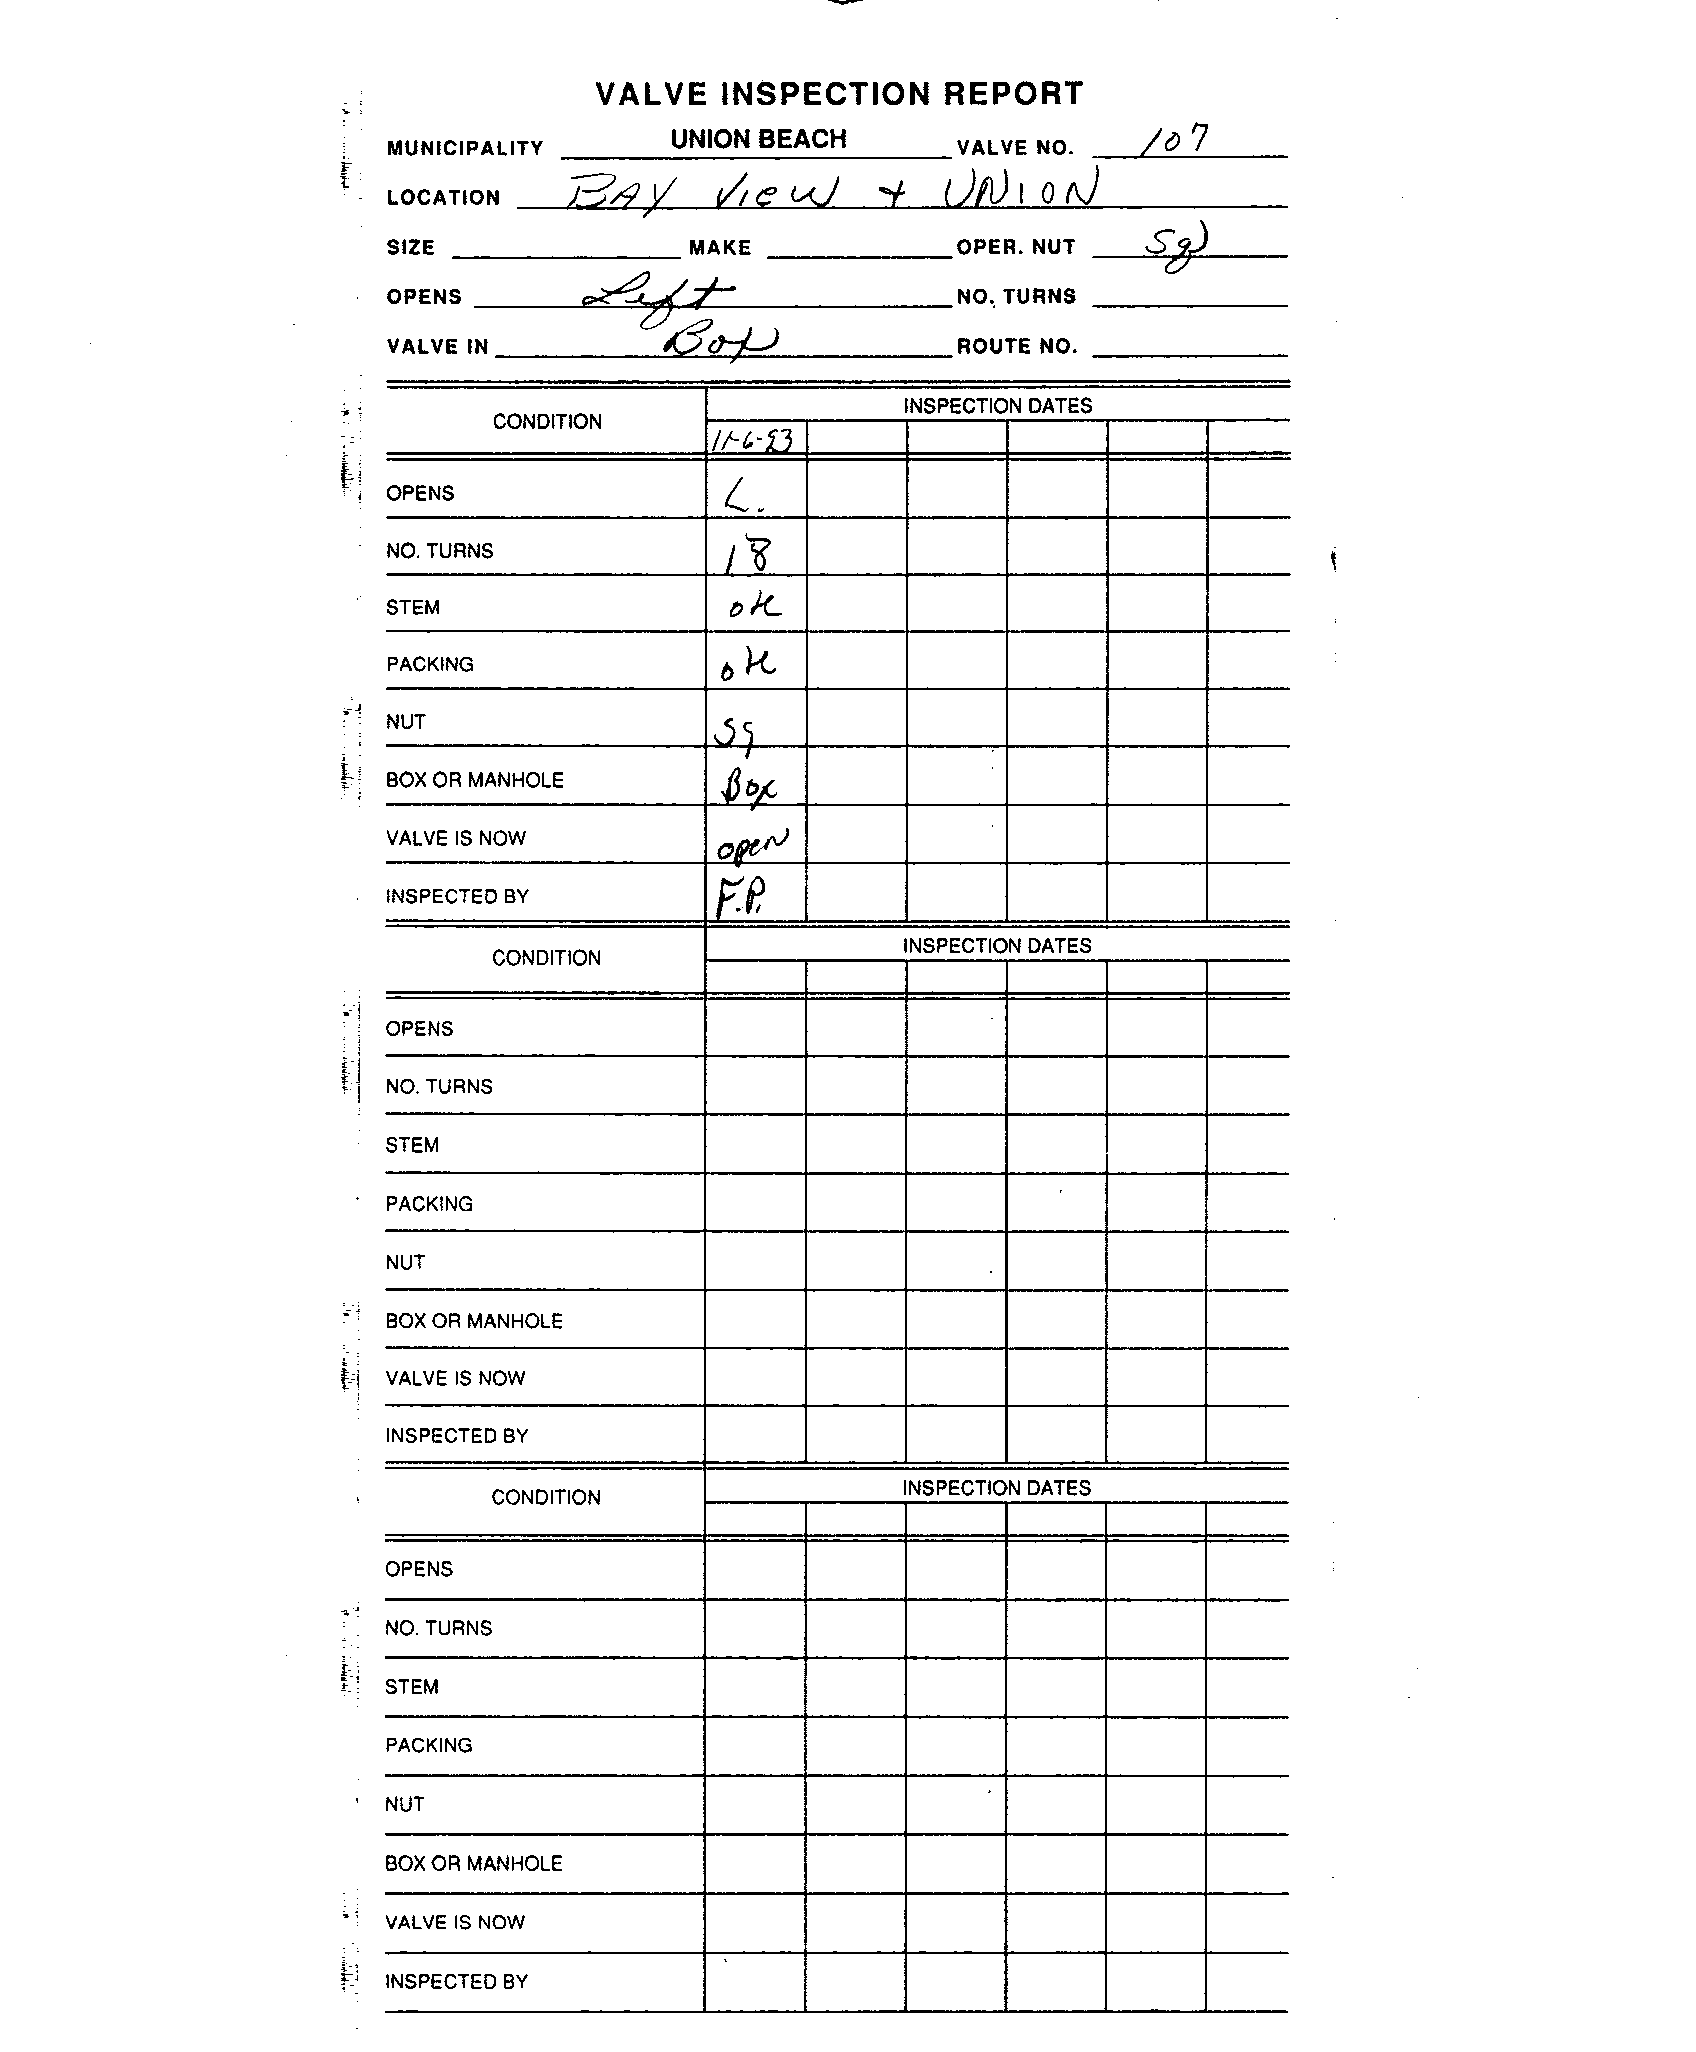 VALVE INSPECTION REPORT
MUNICIPALITY UNION BEACH VALVE NO. 107
LOCATION BAY VIEW + UNION
SIZE MAKE OPER. NUT Sq
OPENS Left NO. TURNS
VALVE IN Box ROUTE NO.
CONDITION INSPECTION DATES
11-6-93
OPENS L.
NO. TURNS 18
STEM OK
PACKING OK
NUT Sq
BOX OR MANHOLE Box
VALVE IS NOW open
INSPECTED BY F.P.
CONDITION INSPECTION DATES
OPENS
NO. TURNS
STEM
PACKING
NUT
BOX OR MANHOLE
VALVE IS NOW
INSPECTED BY
CONDITION INSPECTION DATES
OPENS
NO. TURNS
STEM
PACKING
NUT
BOX OR MANHOLE
VALVE IS NOW
INSPECTED BY